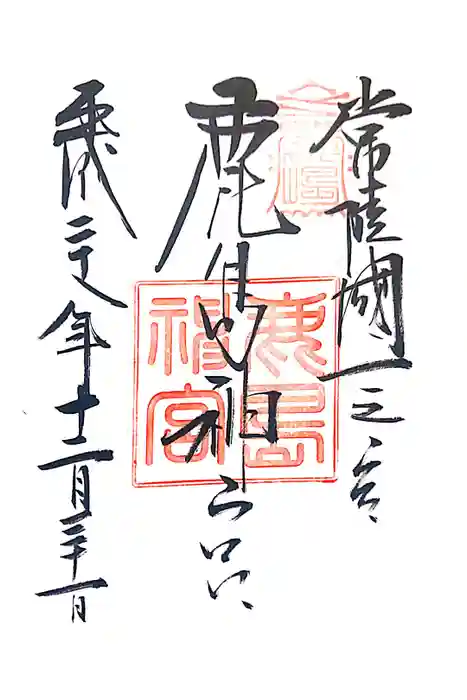 常陸國一之宮
鹿島神宮
鹿島
神宮
平成二十八年十二月三十一日